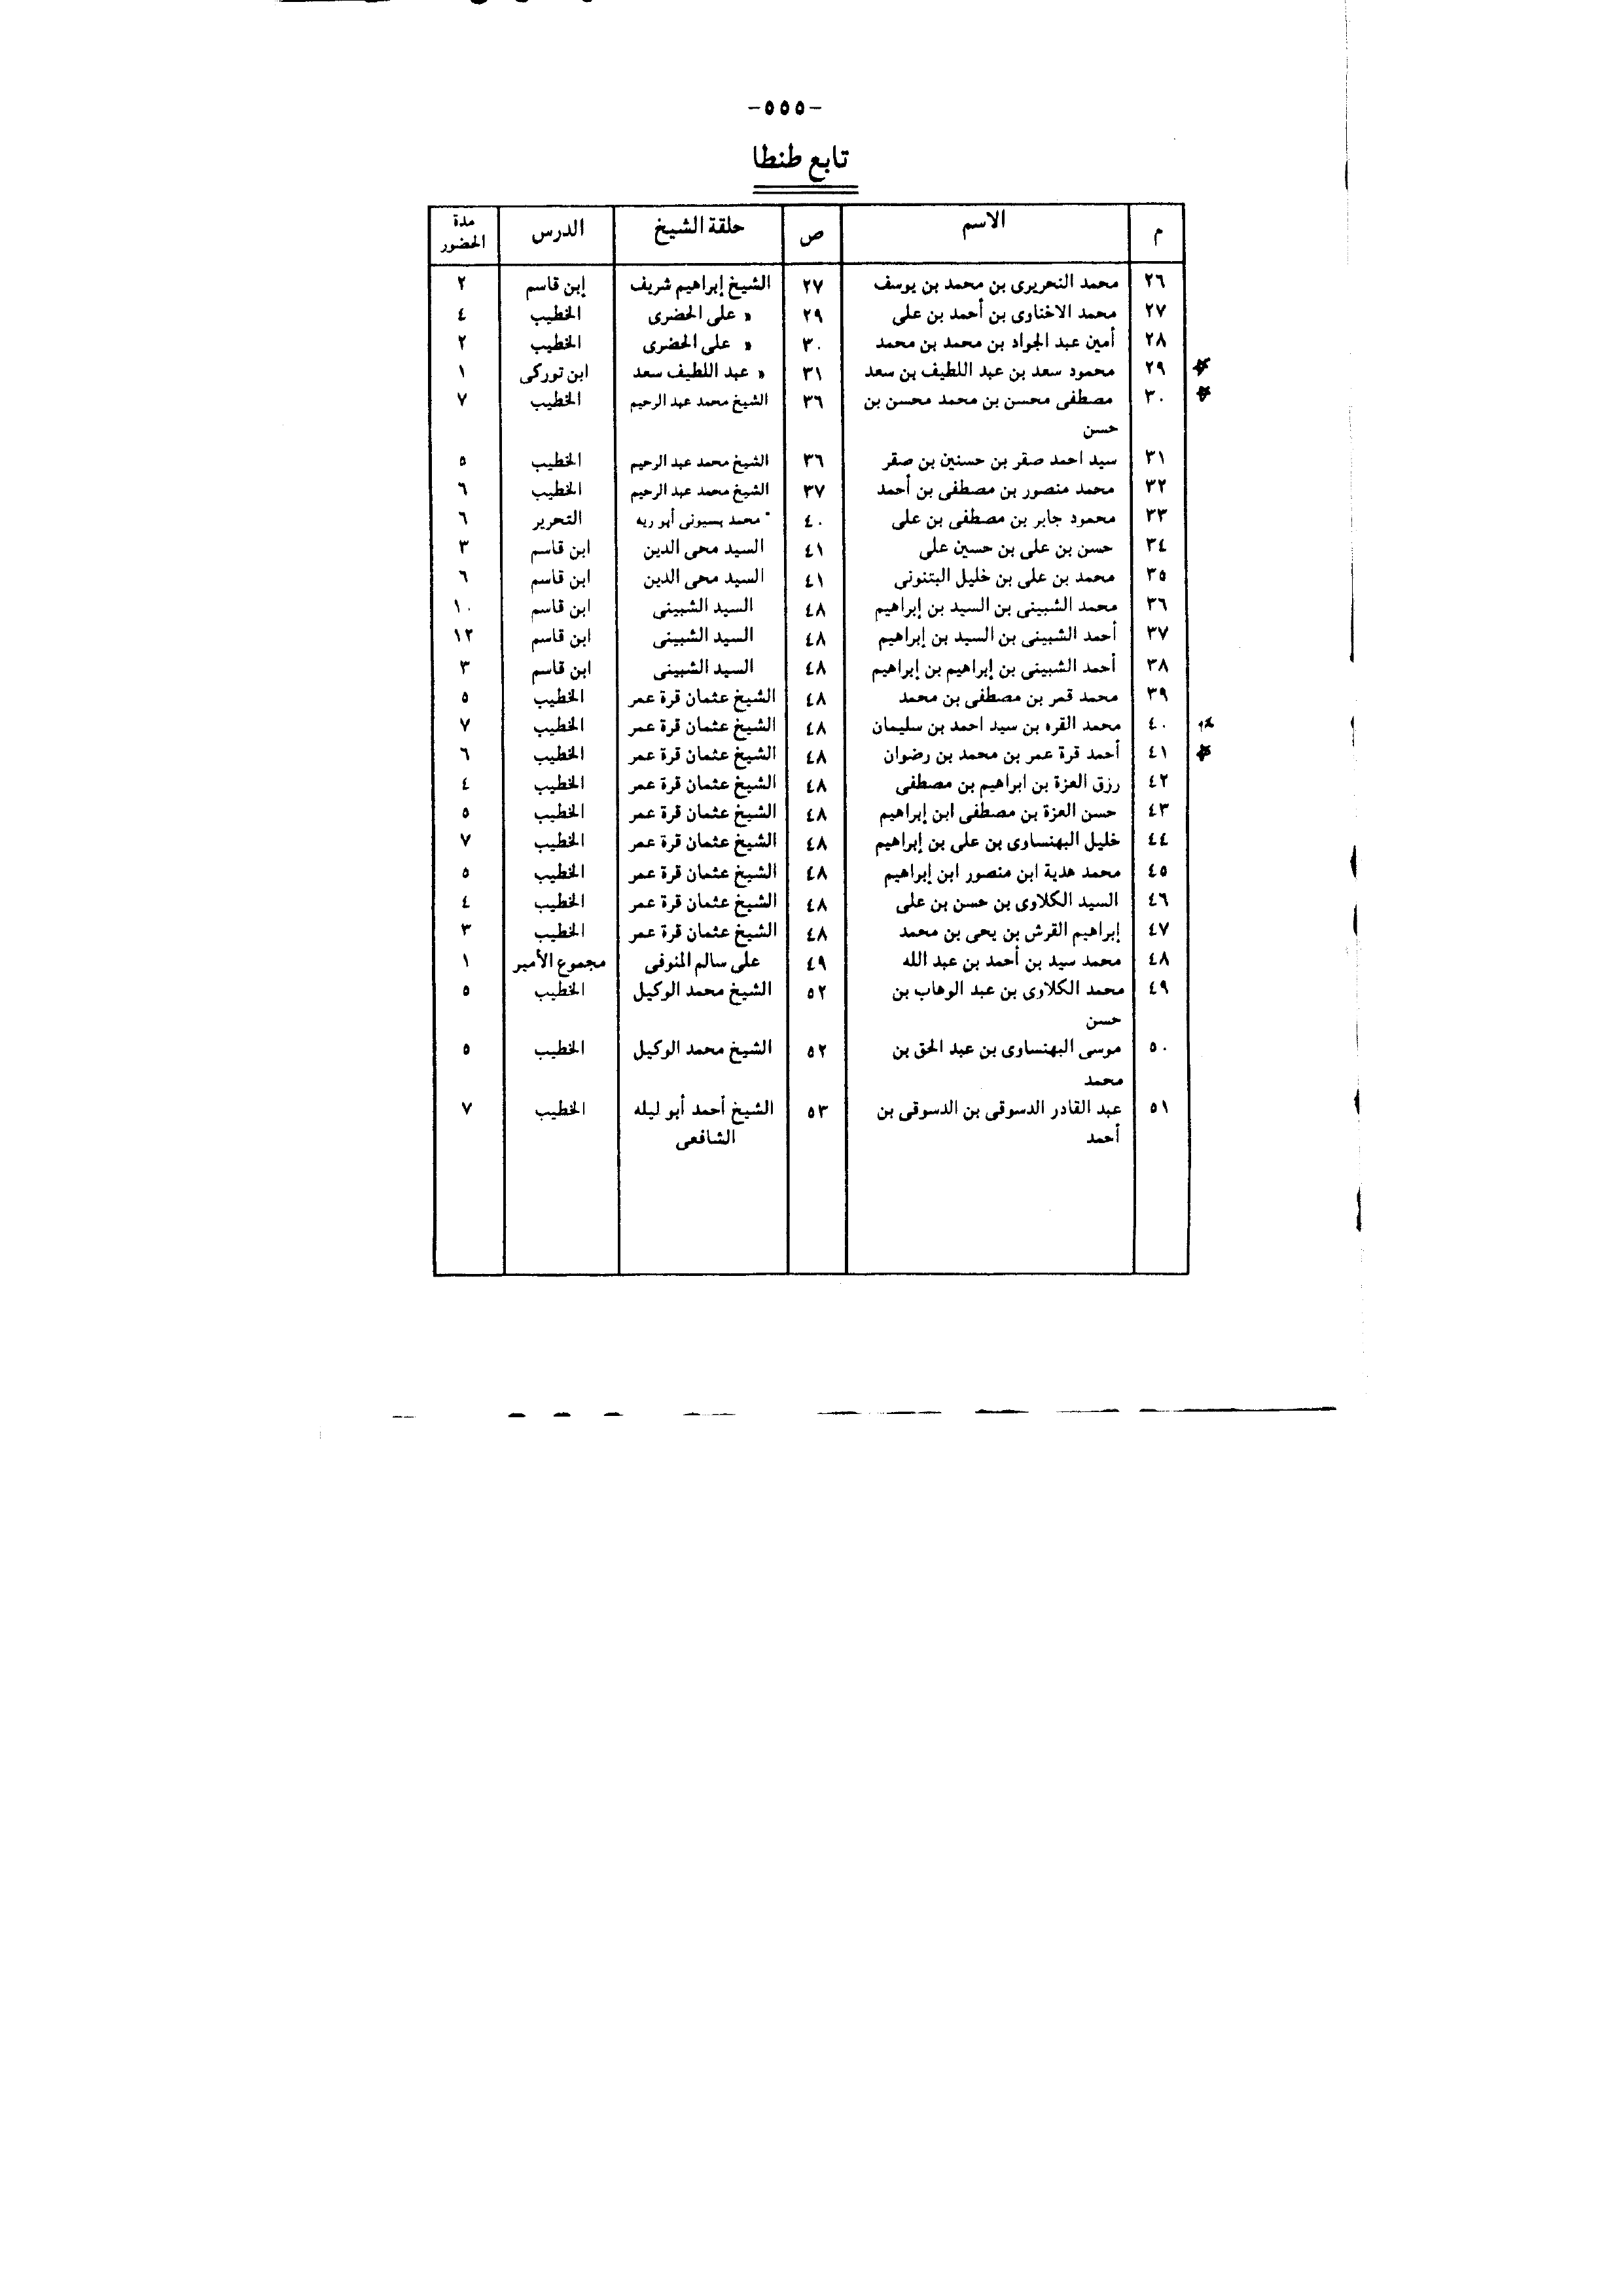 -٥٥٥-
تابع طنطا
م الاسم ص حلقة الشيخ الدرس مدة الحضور
٢٦ محمد النحريرى بن محمد بن يوسف ٢٧ الشيخ إبراهيم شريف إبن قاسم ٢
٢٧ محمد الاخناوى بن أحمد بن على ٢٩ » على الحضرى الخطيب ٤
٢٨ أمين عبد الجواد بن محمد بن محمد ٣٠ » على الحضرى الخطيب ٢
٢٩ محمود سعد بن عبد اللطيف بن سعد ٣١ » عبد اللطيف سعد ابن توركى ١
٣٠ مصطفى محسن بن محمد محسن بن ٣٦ الشيخ محمد عبد الرحيم الخطيب ٧
حسن
٣١ سيد احمد صقر بن حسنين بن صقر ٣٦ الشيخ محمد عبد الرحيم الخطيب ٥
٣٢ محمد منصور بن مصطفى بن أحمد ٣٧ الشيخ محمد عبد الرحيم الخطيب ٦
٣٣ محمود جابر بن مصطفى بن على ٤٠ " محمد بسيونى أبو ريه التحرير ٦
٣٤ حسن بن على بن حسين على ٤١ السيد محى الدين ابن قاسم ٣
٣٥ محمد بن على بن خليل البتنونى ٤١ السيد محى الدين ابن قاسم ٦
٣٦ محمد الشبينى بن السيد بن إبراهيم ٤٨ السيد الشبينى ابن قاسم ١٠
٣٧ أحمد الشبينى بن السيد بن إبراهيم ٤٨ السيد الشبينى ابن قاسم ١٢
٣٨ أحمد الشبينى بن إبراهيم بن إبراهيم ٤٨ السيد الشبينى ابن قاسم ٣
٣٩ محمد قمر بن مصطفى بن محمد ٤٨ الشيخ عثمان قرة عمر الخطيب ٥
٤٠ محمد القره بن سيد احمد بن سليمان ٤٨ الشيخ عثمان قرة عمر الخطيب ٧
٤١ أحمد قرة عمر بن محمد بن رضوان ٤٨ الشيخ عثمان قرة عمر الخطيب ٦
٤٢ رزق العزة بن ابراهيم بن مصطفى ٤٨ الشيخ عثمان قرة عمر الخطيب ٤
٤٣ حسن العزة بن مصطفى ابن إبراهيم ٤٨ الشيخ عثمان قرة عمر الخطيب ٥
٤٤ خليل البهنساوى بن على بن إبراهيم ٤٨ الشيخ عثمان قرة عمر الخطيب ٧
٤٥ محمد هدية ابن منصور ابن إبراهيم ٤٨ الشيخ عثمان قرة عمر الخطيب ٥
٤٦ السيد الكلاوى بن حسن بن على ٤٨ الشيخ عثمان قرة عمر الخطيب ٤
٤٧ إبراهيم القرش بن يحى بن محمد ٤٨ الشيخ عثمان قرة عمر الخطيب ٣
٤٨ محمد سيد بن أحمد بن عبد الله ٤٩ على سالم المنوفى مجموع الأمير ١
٤٩ محمد الكلاوى بن عبد الوهاب بن ٥٢ الشيخ محمد الوكيل الخطيب ٥
حسن
٥٠ موسى البهنساوى بن عبد الحق بن ٥٢ الشيخ محمد الوكيل الخطيب ٥
محمد
٥١ عبد القادر الدسوقى بن الدسوقى بن ٥٣ الشيخ أحمد أبو ليله الخطيب ٧
أحمد الشافعى